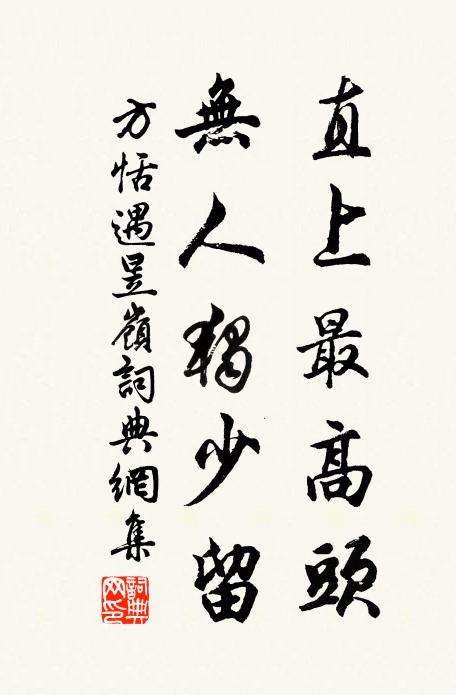 直上最高頭
無人獨少留
方恬遇昱嶺詞典網集
詞典
网印